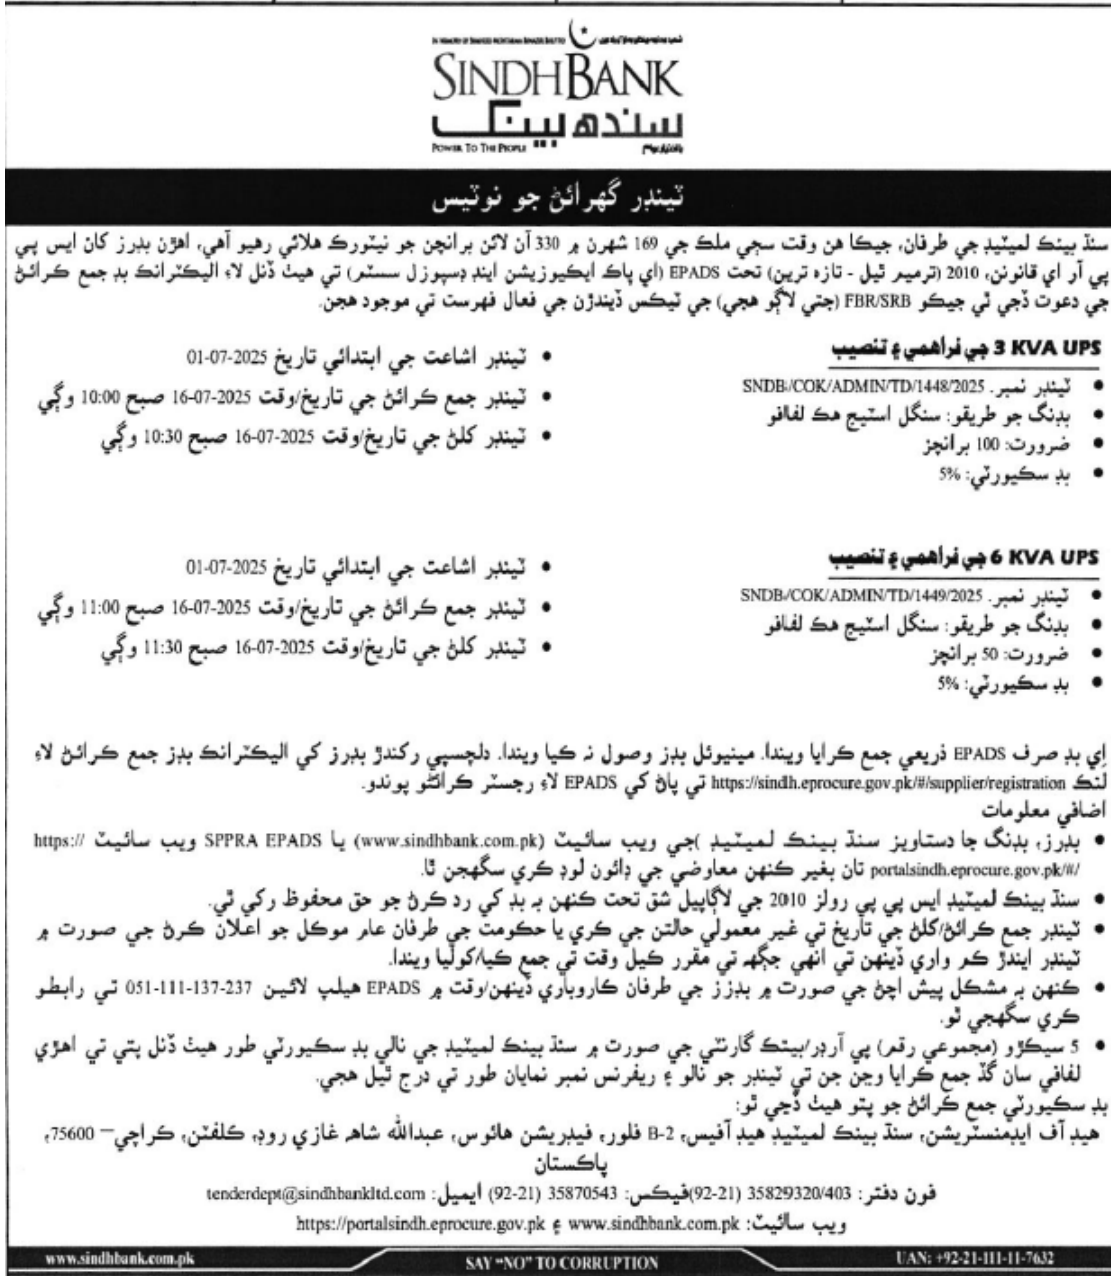 SINDHBANK
سنڌ بينڪ
POWER TO THE PEOPLE
ٽينڊر گهرائڻ جو نوٽيس
سنڌ بينڪ لميٽيڊ جي طرفان، جيڪا هن وقت سڄي ملڪ جي 169 شهرن ۾ 330 آن لائن برانچن جو نيٽورڪ هلائي رهيو آهي، اهڙن بڊرز کان ايس پي
پي آر اي قانونن، 2010 (ترميم ٿيل - تازه ترين) تحت EPADS (اي پاڪ ايڪيوزيشن اينڊ ڊسپوزل سسٽم) تي هيٺ ڏنل لاءِ اليڪٽرانڪ بڊ جمع ڪرائڻ
جي دعوت ڏجي ٿي جيڪو FBR/SRB (جتي لاڳو هجي) جي ٽيڪس ڏيندڙن جي فعال فهرست تي موجود هجن.
3 KVA UPS جي فراهمي ۽ تنصيب
• ٽينڊر نمبر. SNDB/COK/ADMIN/TD/1448/2025
• بڊنگ جو طريقو: سنگل اسٽيج هڪ لفافو
• ضرورت: 100 برانچز
• بڊ سڪيورٽي: 5%
• ٽينڊر اشاعت جي ابتدائي تاريخ 2025-07-01
• ٽينڊر جمع ڪرائڻ جي تاريخ/وقت 2025-07-16 صبح 10:00 وڳي
• ٽينڊر کلڻ جي تاريخ/وقت 2025-07-16 صبح 10:30 وڳي
6 KVA UPS جي فراهمي ۽ تنصيب
• ٽينڊر نمبر. SNDB/COK/ADMIN/TD/1449/2025
• بڊنگ جو طريقو: سنگل اسٽيج هڪ لفافو
• ضرورت: 50 برانچز
• بڊ سڪيورٽي: 5%
• ٽينڊر اشاعت جي ابتدائي تاريخ 2025-07-01
• ٽينڊر جمع ڪرائڻ جي تاريخ/وقت 2025-07-16 صبح 11:00 وڳي
• ٽينڊر کلڻ جي تاريخ/وقت 2025-07-16 صبح 11:30 وڳي
اِي بڊ صرف EPADS ذريعي جمع ڪرايا ويندا. مينيوئل بڊز وصول نه ڪيا ويندا. دلچسپي رکندڙ بڊرز کي اليڪٽرانڪ بڊز جمع ڪرائڻ لاءِ
لنڪ https://sindh.eprocure.gov.pk/#/supplier/registration تي پاڻ کي EPADS لاءِ رجسٽر ڪرائڻو پوندو.
اضافي معلومات
• بڊرز، بڊنگ جا دستاويز سنڌ بينڪ لميٽيڊ )جي ويب سائيٽ (www.sindhbank.com.pk) يا SPPRA EPADS ويب سائيٽ https://
portalsindh.eprocure.gov.pk/#/ تان بغير ڪنهن معاوضي جي ڊائون لوڊ ڪري سگهجن ٿا.
• سنڌ بينڪ لميٽيڊ ايس پي پي رولز 2010 جي لاڳاپيل شق تحت ڪنهن به بڊ کي رد ڪرڻ جو حق محفوظ رکي ٿي.
• ٽينڊر جمع ڪرائڻ/کلڻ جي تاريخ تي غير معمولي حالتن جي ڪري يا حڪومت جي طرفان عام موڪل جو اعلان ڪرڻ جي صورت ۾
ٽينڊر ايندڙ ڪم واري ڏينهن تي انهي جڳهه تي مقرر ڪيل وقت تي جمع ڪيا/کوليا ويندا.
• ڪنهن به مشڪل پيش اچڻ جي صورت ۾ بڊرز جي طرفان ڪاروباري ڏينهن/وقت ۾ EPADS هيلپ لائين 051-111-137-237 تي رابطو
ڪري سگهجي ٿو.
• 5 سيڪڙو (مجموعي رقم) پي آرڊر/بينڪ گارنٽي جي صورت ۾ سنڌ بينڪ لميٽيڊ جي نالي بڊ سڪيورٽي طور هيٺ ڏنل پتي تي اهڙي
لفافي سان گڏ جمع ڪرايا وڃن جن تي ٽينڊر جو نالو ۽ ريفرنس نمبر نمايان طور تي درج ٿيل هجي.
بڊ سڪيورٽي جمع ڪرائڻ جو پتو هيٺ ڏجي ٿو:
هيڊ آف ايڊمنسٽريشن، سنڌ بينڪ لميٽيڊ هيڊ آفيس، B-2 فلور، فيڊريشن هائوس، عبدالله شاهه غازي روڊ، ڪلفٽن، ڪراچي– 75600،
پاڪستان
فون دفتر: 35829320/403 (92-21)فيڪس: 35870543 (92-21) ايميل: tenderdept@sindhbankltd.com
ويب سائيٽ: www.sindhbank.com.pk ۽ https://portalsindh.eprocure.gov.pk
www.sindhbank.com.pk
SAY “NO” TO CORRUPTION
UAN: +92-21-111-11-7632